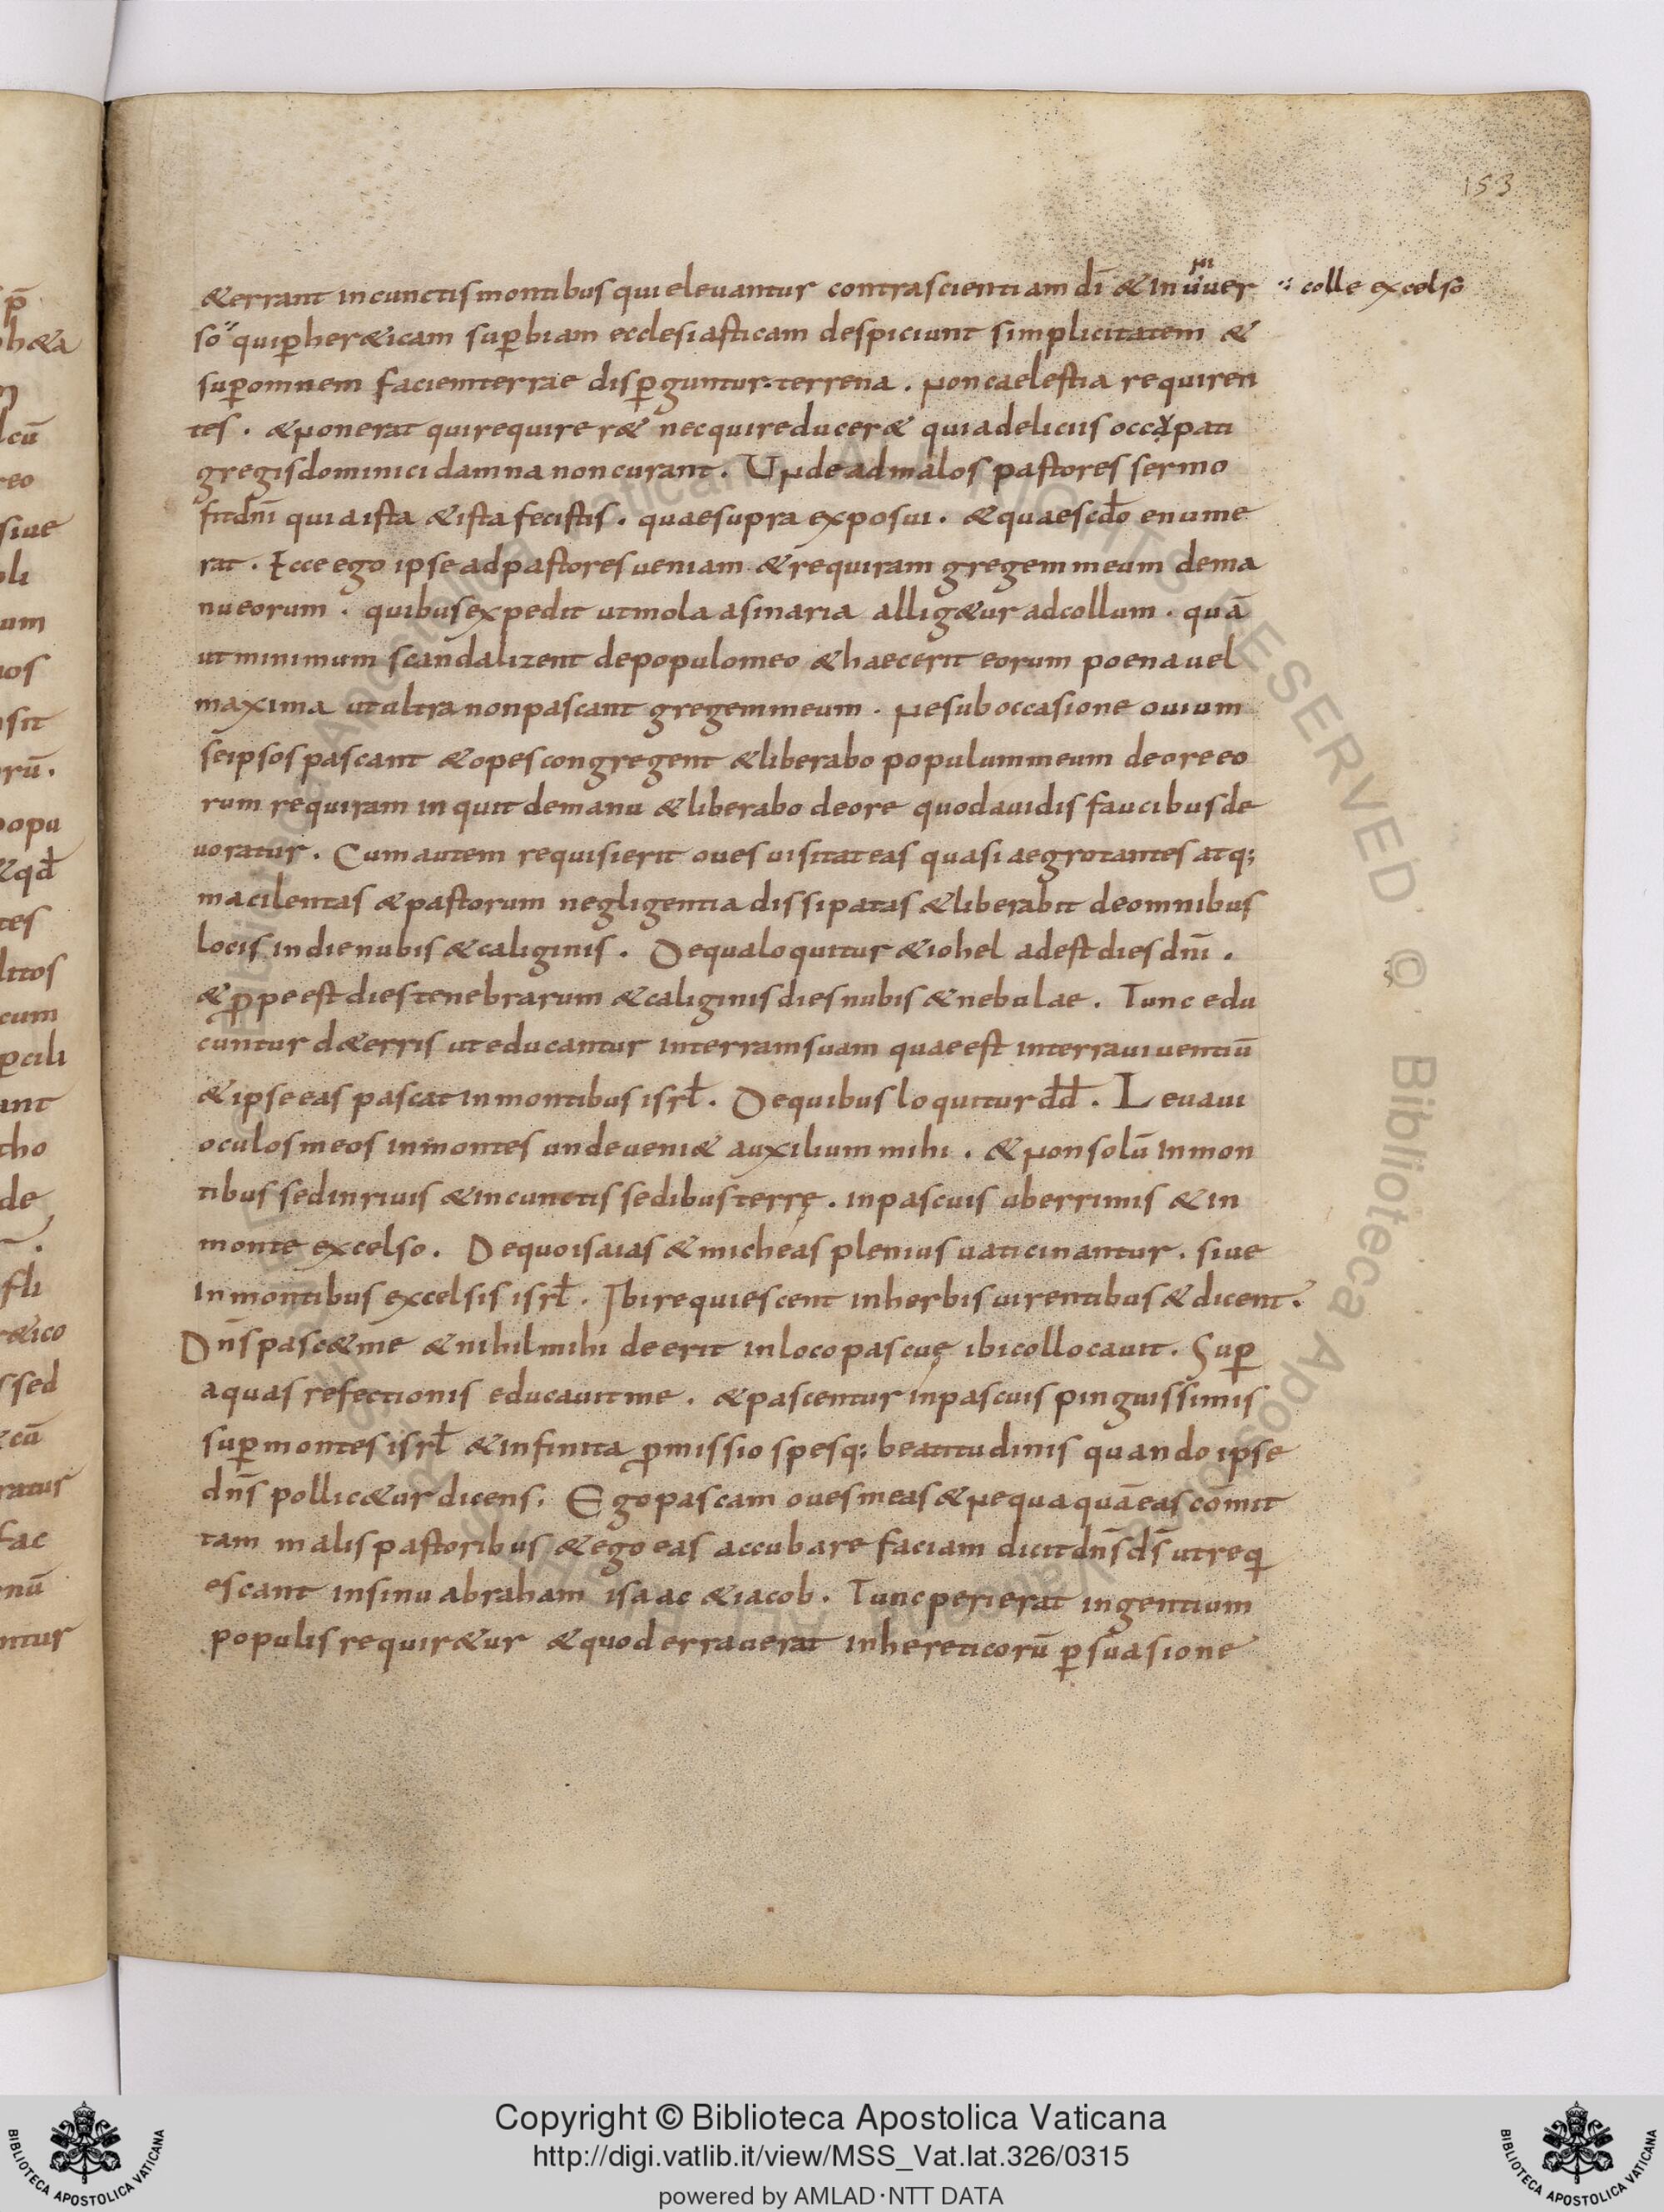 153
& errant in cunctis montibus qui elevantur contra scientiam dī & in uniuer
so qui ꝑ her&icam suꝑbiam ecclesiasticam despiciunt simplicitatem & colle excelso
suꝑ omnem faciem terrae disꝑguntur. terrena. non caelestia requiren
tes. & non erat qui requirer& nec qui reducer& quia deliciis occupati
gregis dominici damna non curant. Unde ad malos pastores sermo
fit dnī qui a ista & ista fecistis. quae supra exposui. & quae scdo enume
rat. Ecce ego ipse ad pastores ueniam & requiram gregem meum de ma
nu eorum. quibus expedit ut mola asinaria allig&ur ad collum. quā
ut minimum scandalizent de populo meo & haec erit eorum poena uel
maxima ut ultra non pascant gregem meum. ne sub occasione ouium
seipsos pascant & opes congregent & liberabo populum meum de ore eo
rum requiram inquit de manu & liberabo de ore quod auidis faucibus de
uoratur. Cum autem requisierit oues uisitat eas quasi aegrotantes atq;
macilentas & pastorum negligentia dissipatas & liberabit de omnibus
locis in die nubis & caliginis. De qua loquitur & iohel adest dies dnī.
& ꝓpe est dies tenebrarum & caliginis dies nubis & nebulae. Tunc edu
cuntur d&erris ut educantur in terram suam quae est in terra uiuentiū
& ipse eas pascat in montibus isrł. De quibus loquitur dd̄. Leuaui
oculos meos in montes unde ueni& auxilium mihi. & non solū in mon
tibus sed in riuis & in cunctis sedibus terrę. in pascuis uberrimis & in
monte excelso. De quo isaias & micheas plenius uaticinantur. siue
In montibus excelsis isrł. Ibi requiescent in herbis uirentibus & dicent.
Dn̄s pasc& me & nihil mihi deerit in loco pascuę ibi collocauit. Suꝑ
aquas refectionis educauit me. & pascentur in pascuis pinguissimis
suꝑ montes isrł & infinita ꝓmissio spesq; beatitudinis quando ipse
dn̄s pollic&ur dicens. Ego pascam oues meas & nequaquā eas cōmit
tam malis pastoribus & ego eas accubare faciam dicit dn̄s ds̄ ut requi
escant in sinu abraham isaac & iacob. Tunc perierat in gentium
populis requir&ur & quod errauerat in hereticorū ꝑsuasione
Copyright © Biblioteca Apostolica Vaticana
http://digi.vatlib.it/view/MSS_Vat.lat.326/0315
powered by AMLAD·NTT DATA
BIBLIOTECA APOSTOLICA VATICANA
BIBLIOTECA APOSTOLICA VATICANA